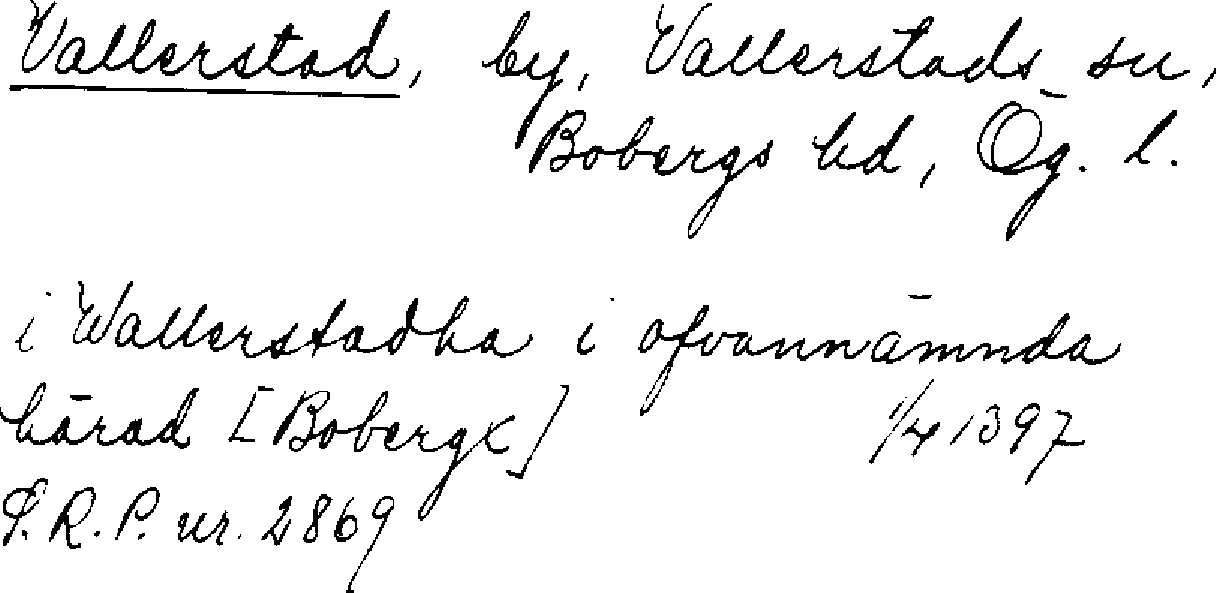 Vallerstad, by, Vallerstads sn,
Bobergs hd, Ög. l.
i Wallerstadha i ofvannämnda
härad [Bobergx] 1/4 1397
S.R.P. nr. 2869